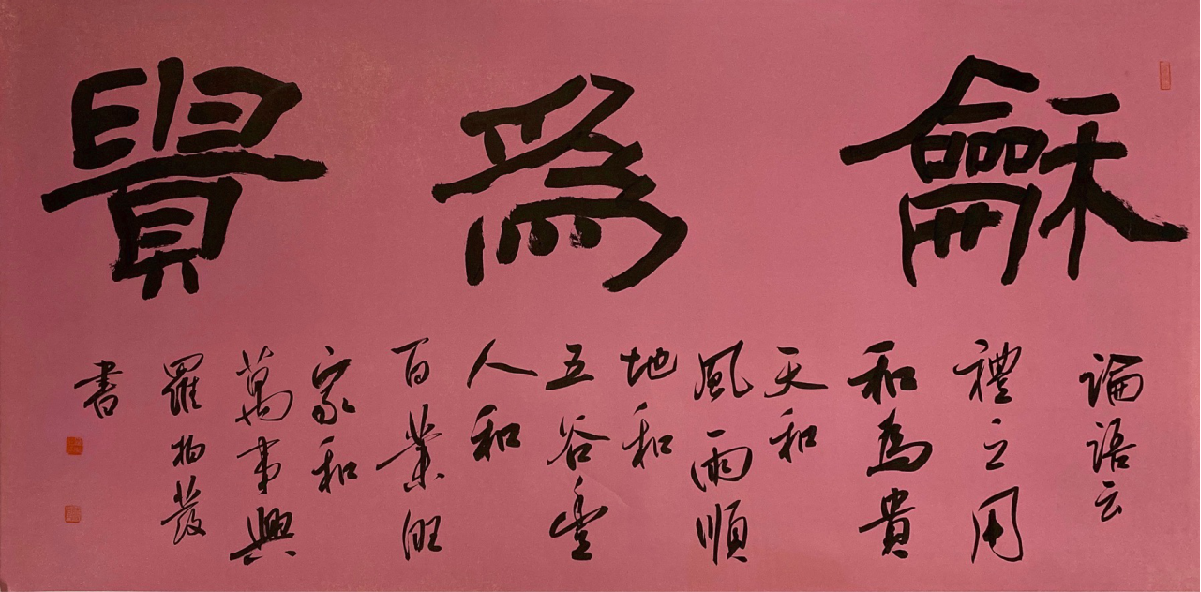 龢為貴
論語云
禮之用
和為貴
天和
風雨順
地和
五谷豐
人和
百業旺
家和
萬事興
羅
書